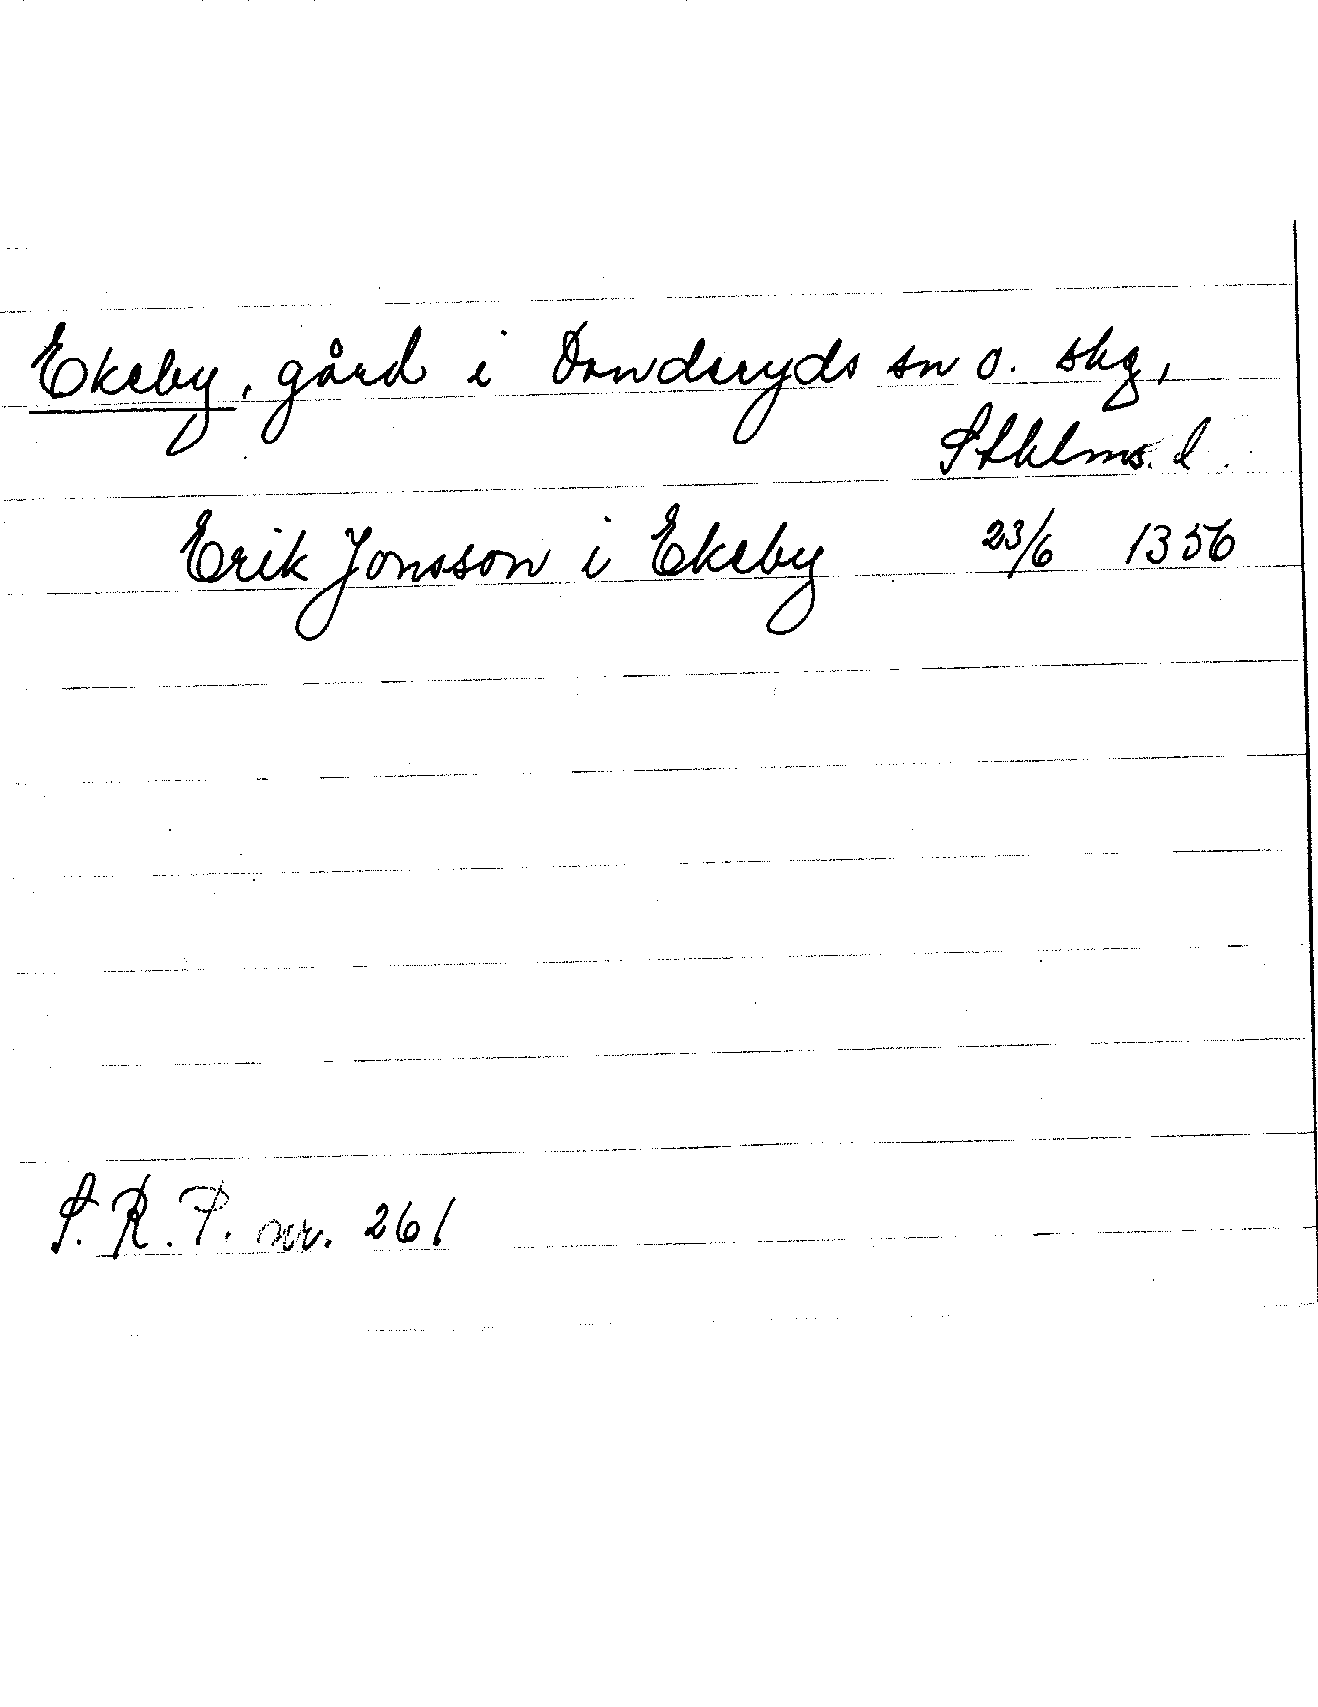 Ekeby, gård i Danderyds sn o. skg,
Sthlms. l.
Erik Jonsson i Ekeby 23/6 1356
S. R. P. nr. 261